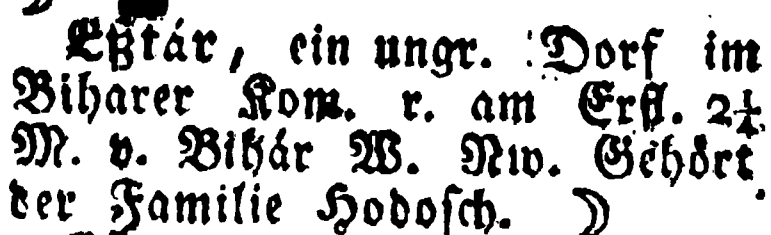 Eßtár, ein ungr. Dorf im
Biharer Kom. r. am Erfl. 2¼
M. v. Bihár W. Nw. Gehört
der Familie Hodosch. ☽